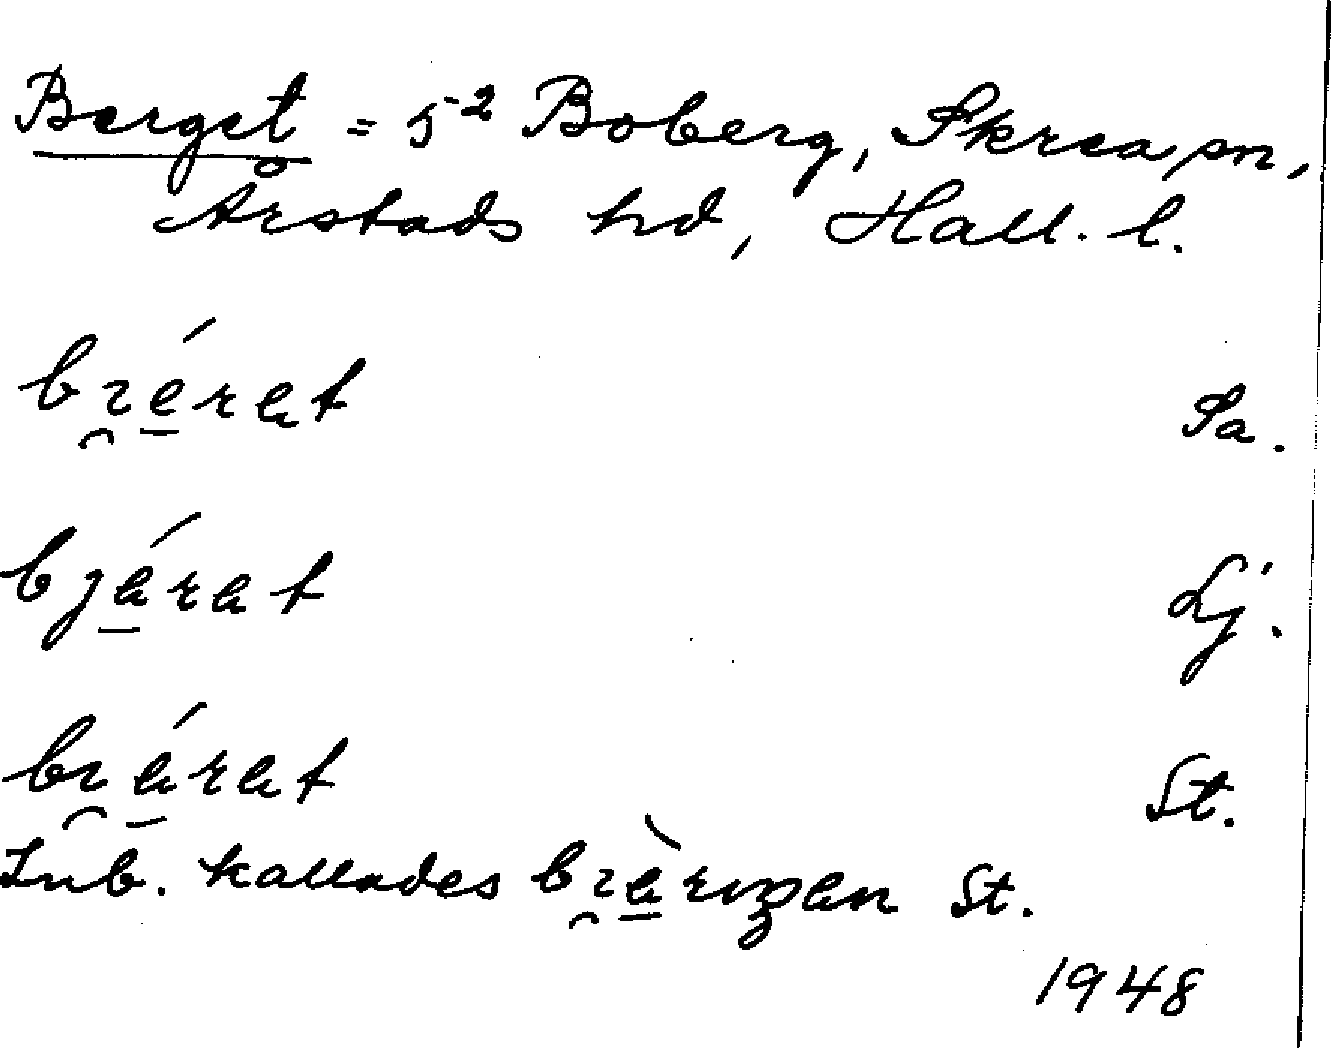 Berget = 5² Boberg, Skrea sn,
Årstads hd, Hall. l.
bɿ̯é̠rat Sa.
bjá̠rat Lj.
bɿ̯á̠rat St.
Inb. kallades bɿ̯à̠rıŋan St.
1948